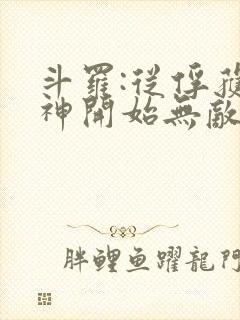 斗羅:從俘獲
神開始無敵
胖鯉魚躍龍門